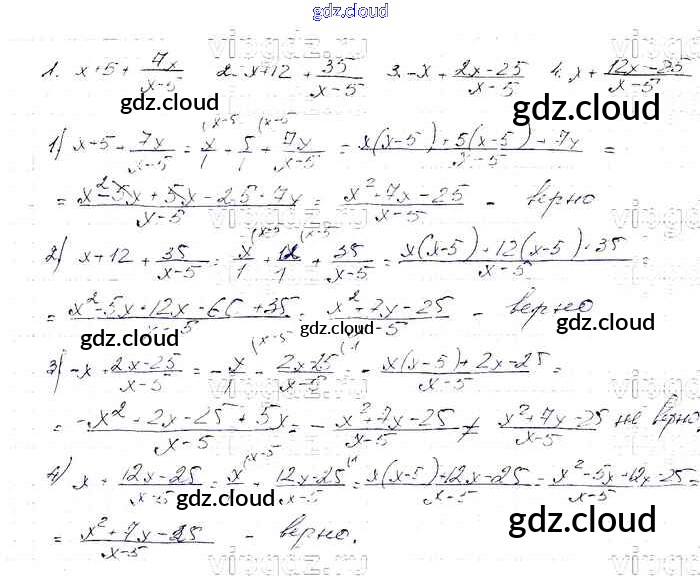 gdz.cloud
gdz.cloud
1. x+5+ 7x/(x-5) 2. x+12+ 35/(x-5) 3. -x+ (2x-25)/(x-5) 4. x+ (12x-25)/(x-5)
gdz.cloud gdz.cloud
1) x+5+ 7x/(x-5) = x/1 (x-5 + 5/1 (x-5 + 7x/(x-5) = (x(x-5)+5(x-5)+7x)/(x-5) =
= (x²-5x+5x-25+7x)/(x-5) = (x²+7x-25)/(x-5) - верно
gdz.cloud
2) x+12+ 35/(x-5) = x/1 (x-5 + 12/1 (x-5 + 35/(x-5) = (x(x-5)+12(x-5)+35)/(x-5) =
= (x²-5x+12x-60+35)/(x-5) = (x²+7x-25)/(x-5) - верно
gdz.cloud gdz.cloud gdz.cloud
3) -x+ (2x-25)/(x-5) = - x/1 (x-5 + (2x-25)/(x-5) (1 = (-x(x-5)+2x-25)/(x-5) =
gdz.cloud
= (-x²+2x-25+5x)/(x-5) = (-x²+7x-25)/(x-5) ≠ (x²+7x-25)/(x-5) не верно
4) x+ (12x-25)/(x-5) = x/1 (x-5 + (12x-25)/(x-5) (1 = (x(x-5)+12x-25)/(x-5) = (x²-5x+12x-25)/(x-5) =
gdz.cloud gdz.cloud
= (x²+7x-25)/(x-5) - верно.
gdz.cloud